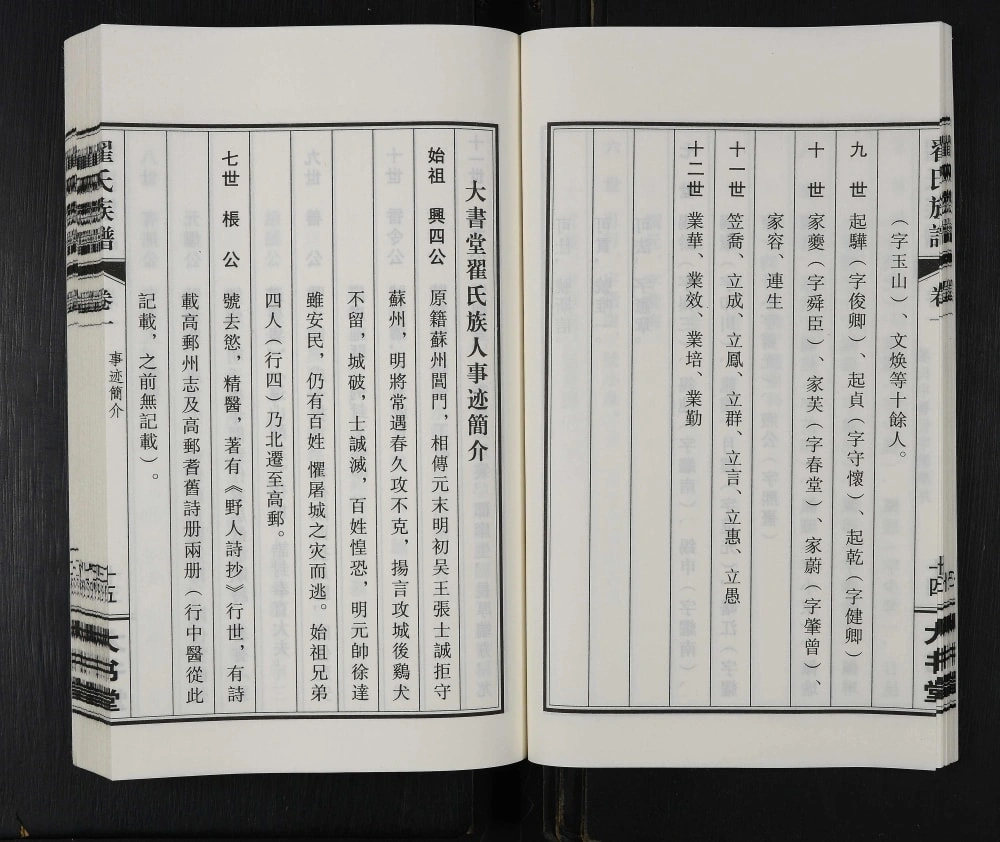 翟氏族譜
卷一
十四
大书堂
（字玉山）、文焕等十餘人。
九　世　起驊（字俊卿）、起貞（字守懷）、起乾（字健卿）
十　世　家夔（字舜臣）、家芙（字春堂）、家蔚（字肇曾）、
家容、連生
十一世　笠喬、立成、立鳳、立群、立言、立惠、立愚
十二世　業華、業效、業培、業勤
大書堂翟氏族人事迹簡介
始祖　興四公　原籍蘇州閶門，相傳元末明初吴王張士誠拒守
蘇州，明將常遇春久攻不克，揚言攻城後鷄犬
不留，城破，士誠滅，百姓惶恐，明元帥徐達
雖安民，仍有百姓 懼屠城之灾而逃。始祖兄弟
四人（行四）乃北遷至高郵。
七世　棖　公　號去慾，精醫，著有《野人詩抄》行世，有詩
載高郵州志及高郵耆舊詩册兩册（行中醫從此
記載，之前無記載）。
翟氏族譜
卷一
事迹簡介
十五
大书堂